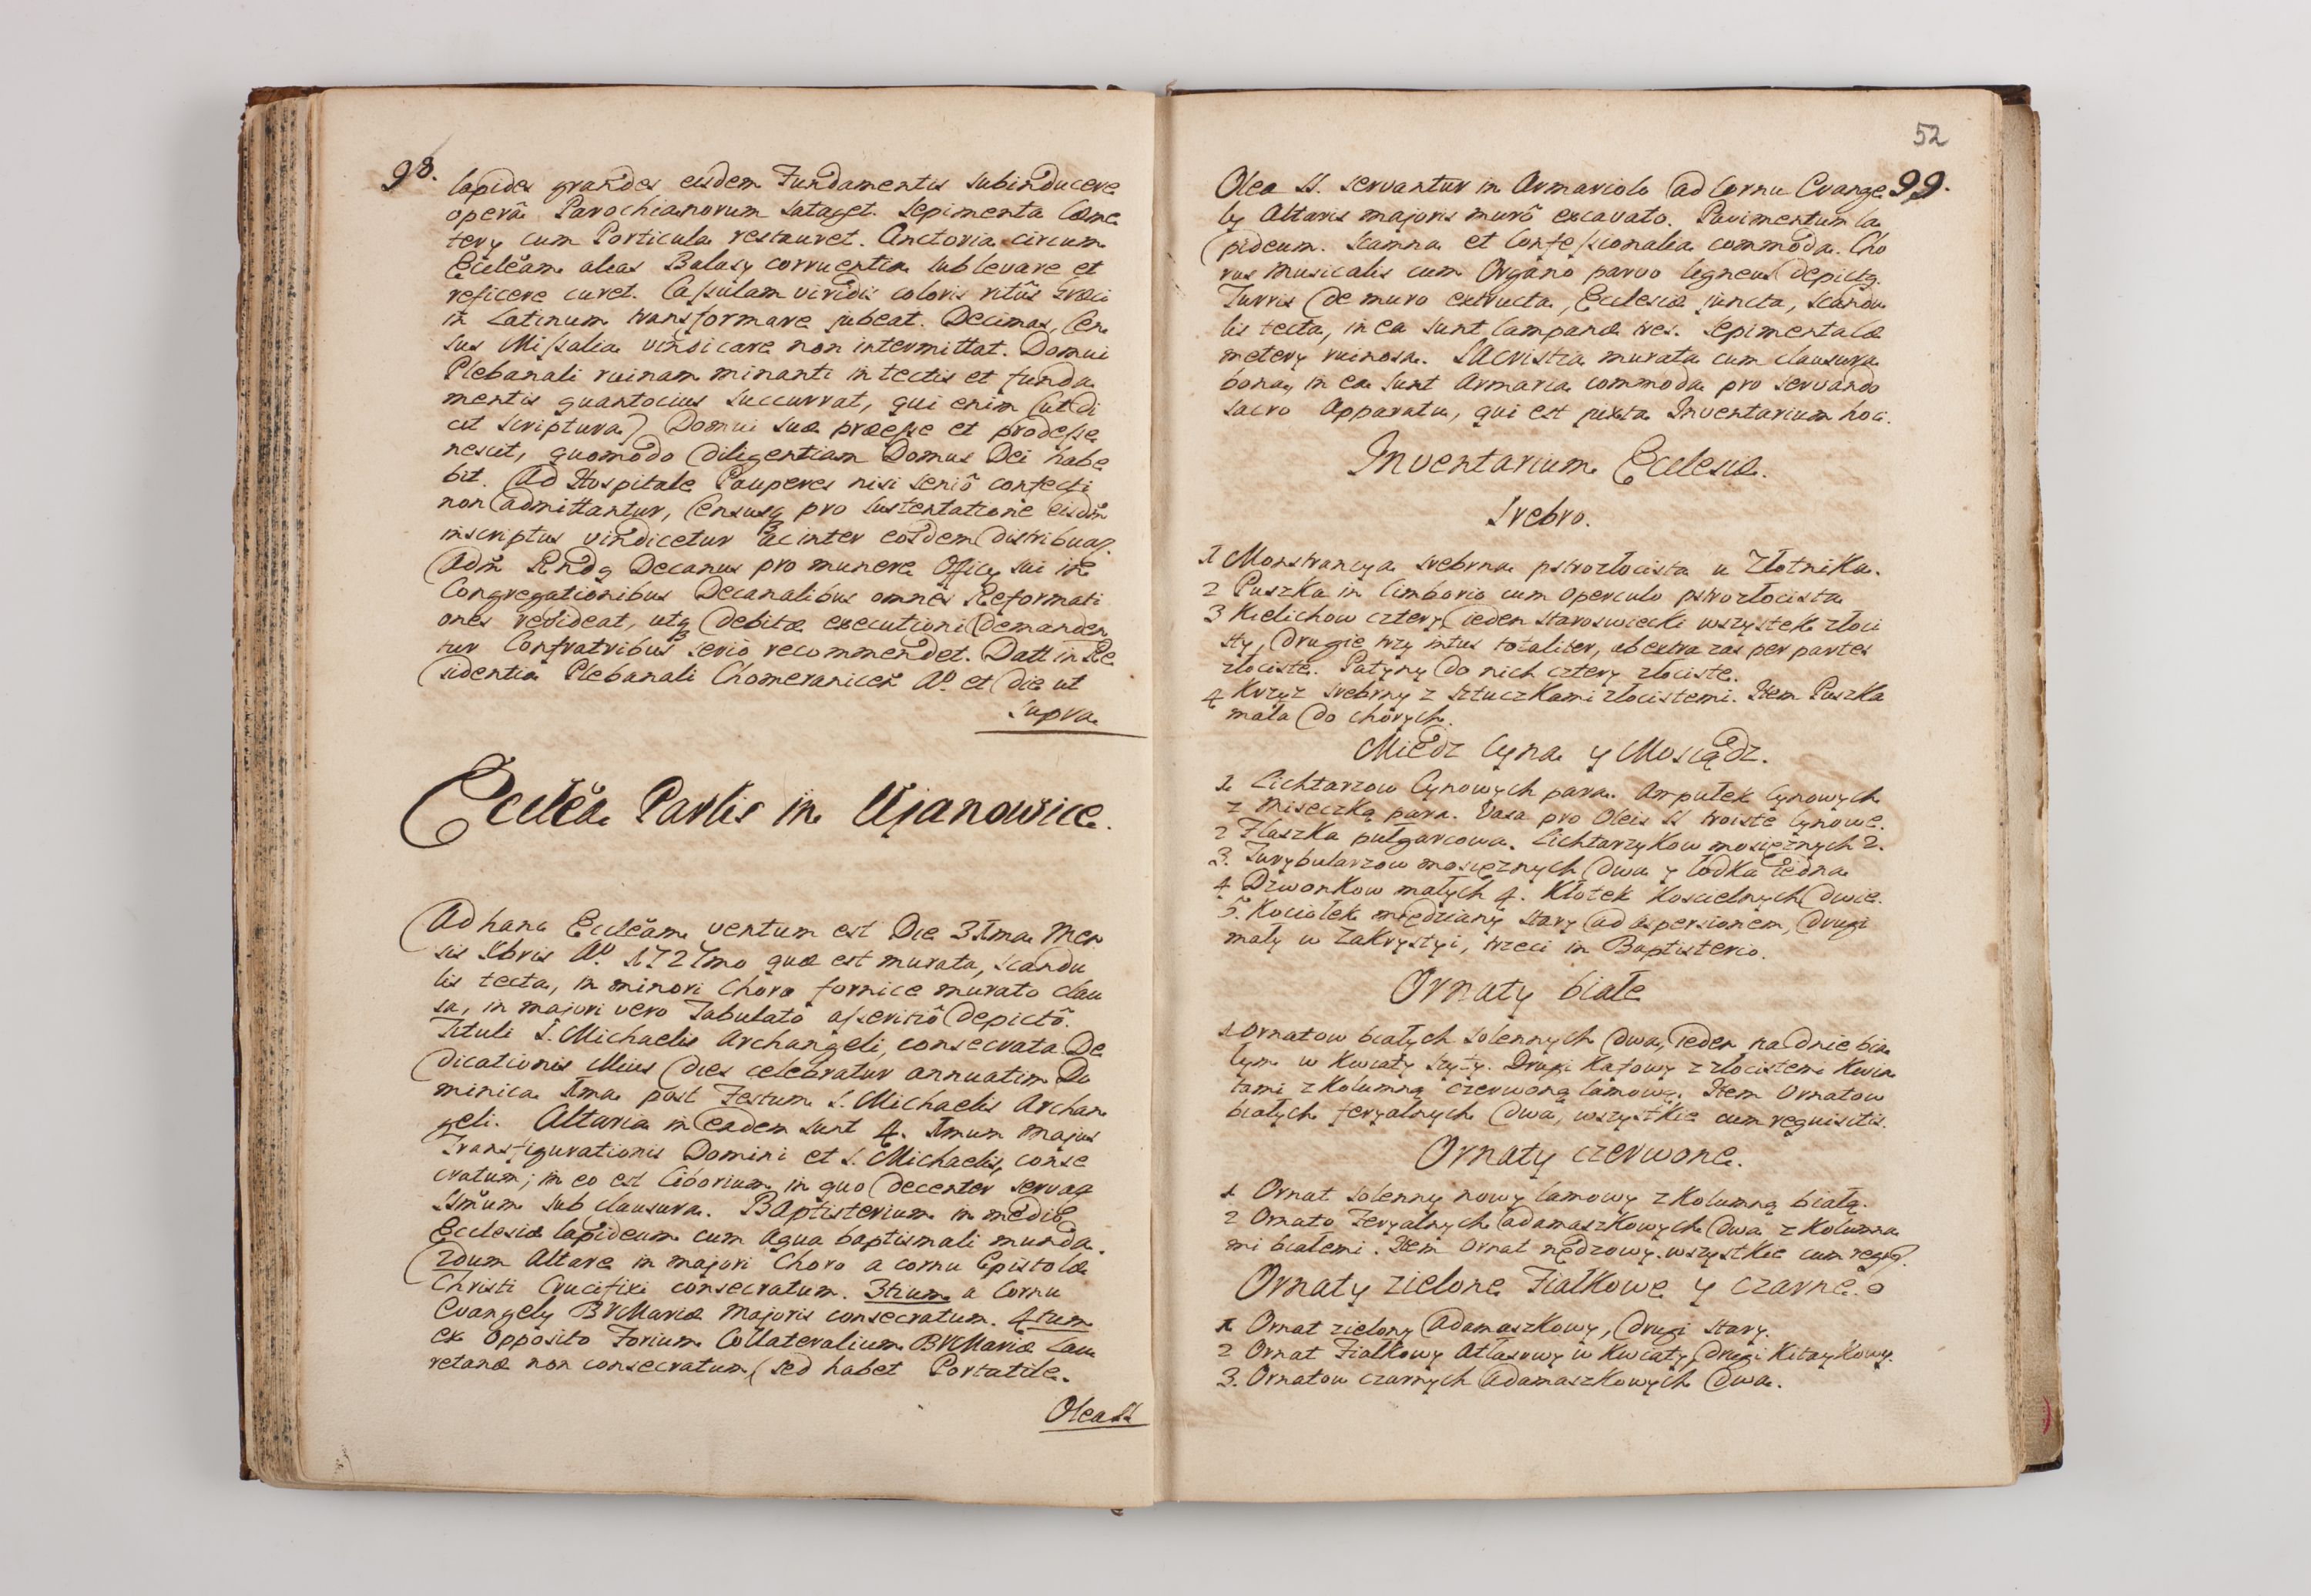 98.
lapides grandes eisdem Fundamentis subinducere
operâ Parochianorum sataget. Sepimenta Cæme
terij cum Porticula restauret. Cinctoria circum
Ecclĕam alias Balasy corruentia sublevare et
reficere curet. Casulam viridis coloris ritûs Græci
in Latinum transformare jubeat. Decimas, Cen
sus Missalia vindicare non intermittat. Domui
Plebanali ruinam minanti in tectis et funda
mentis quantocius succurrat, qui enim (ut di
cit scriptura) Domui suæ præesse et prodesse
nescit, quomodo diligentiam Domus Dei habe
bit. Ad Hospitale Pauperes nisi seniô confecti
non admittantur, Censusq pro sustentatione eisdm̃
inscriptus vindicetur ac inter eosdem distribuat.
Adm̃ Rndq Decanus pro munere Officij sui in
Congregationibus Decanalibus omnes Reformati
ones revideat, utq debitæ executioni demanden
tur Confratribus seriò recommendet. Datt in Re
sidentia Plebanali Chomeranicen̄ Aº et die ut
supra.
Ecclĕa Parlis in Ujanowice.
Ad hanc Ecclĕam ventum est Die 31ma Men
sis Xbris Aº 1727mo quæ est murata, scandu
lis tecta, in minori Choro fornice murato clau
sa, in majori vero Tabulatô asseritiô depictô.
Tituli S. Michaelis Archangeli, consecrata. De
dicationis illius dies celebratur annuatim Do
minica 1ma post Festum S. Michaelis Archan
geli. Altaria in eadem sunt 4. 1mum majus
Transfigurationis Domini et S. Michaelis, conse
cratum; in eo est Ciborium in quo decenter servat
SSmum sub clausura. Baptisterium in medio
Ecclesiæ lapideum cum aqua baptismali munda.
2dum Altare in majori Choro a cornu Epistolæ
Christi Crucifixi consecratum. 3tium a Cornu
Evangelij BVMariæ Majoris consecratum. 4tum
ex opposito Forium Collateralium BVMariæ Lau
retanæ non consecratum, sed habet Portatile.
Olea SS
52
99.
Olea SS. servantur in Armariolo ad Cornu Evange
lij Altaris majoris murô excavato. Pavimentum la
pideum. Scamna et Confessionalia commoda. Cho
rus musicalis cum Organo parvo ligneus depictq.
Turris de muro extructa, Ecclesiæ juncta, scandu
lis tecta, in ea sunt Campanæ tres. Sepimenta Cæ
meterij ruinosa. Sacristia murata cum clausura
bona, in ea sunt Armaria commoda pro servando
sacro Apparatu, qui est juxta Inventarium hoc.
Inventarium Ecclesiæ.
Srebro.
1 Monstrancya srebrna pstrozłocista u Złotnika.
2 Puszka in Cimborio cum operculo pstrozłocista
3 Kielichow cztery ieden staroswiecki wszystek złoci
sty, drugie trzy intus totaliter, ab extra zas per partes
złociste. Patyny do nich cztery złociste.
4 Krzyz srebrny z sztuczkami złocistemi. Item Puszka
mała do chorych.
Miedz Cyna y Mosiądz.
1. Lichtarzow Cynowych para. Ampułek Cynowych
z miseczką para. Vasa pro Oleis SS troiste Cynowe.
2 Flaszka pułgarcowa. Lichtarzykow mosięznych 2.
3. Turybularzow mosięznych dwa y łodka iedna
4 Dzwonkow małych 4. Kłotek Koscielnych dwie.
5. Kociołek miedziany stary ad aspersionem, drugi
mały w Zakrystyi, trzeci in Baptisterio.
Ornaty białe
1 Ornatow białych solennych dwa, ieden na dnie bia
łym w kwiaty szyty. Drugi Kątowy z złocistemi kwia
tami z Kolumną czerwoną lamową. Item Ornatow
białych feryalnych dwa, wszystkie cum requisitis.
Ornaty czerwone.
1 Ornat solenny nowy lamowy z Kolumną białą.
2 Ornato Feryalnych adamaszkowych dwa z Kolumna
mi białemi. Item Ornat nędzowy. wszystkie cum reqs.
Ornaty zielone Fiałkowe y czarne.
1 Ornat zielony Adamaszkowy, drugi stary.
2 Ornat Fiałkowy Atłasowy w kwiaty, drugi Kitaykowy.
3. Ornatow czarnych Adamaszkowych dwa.